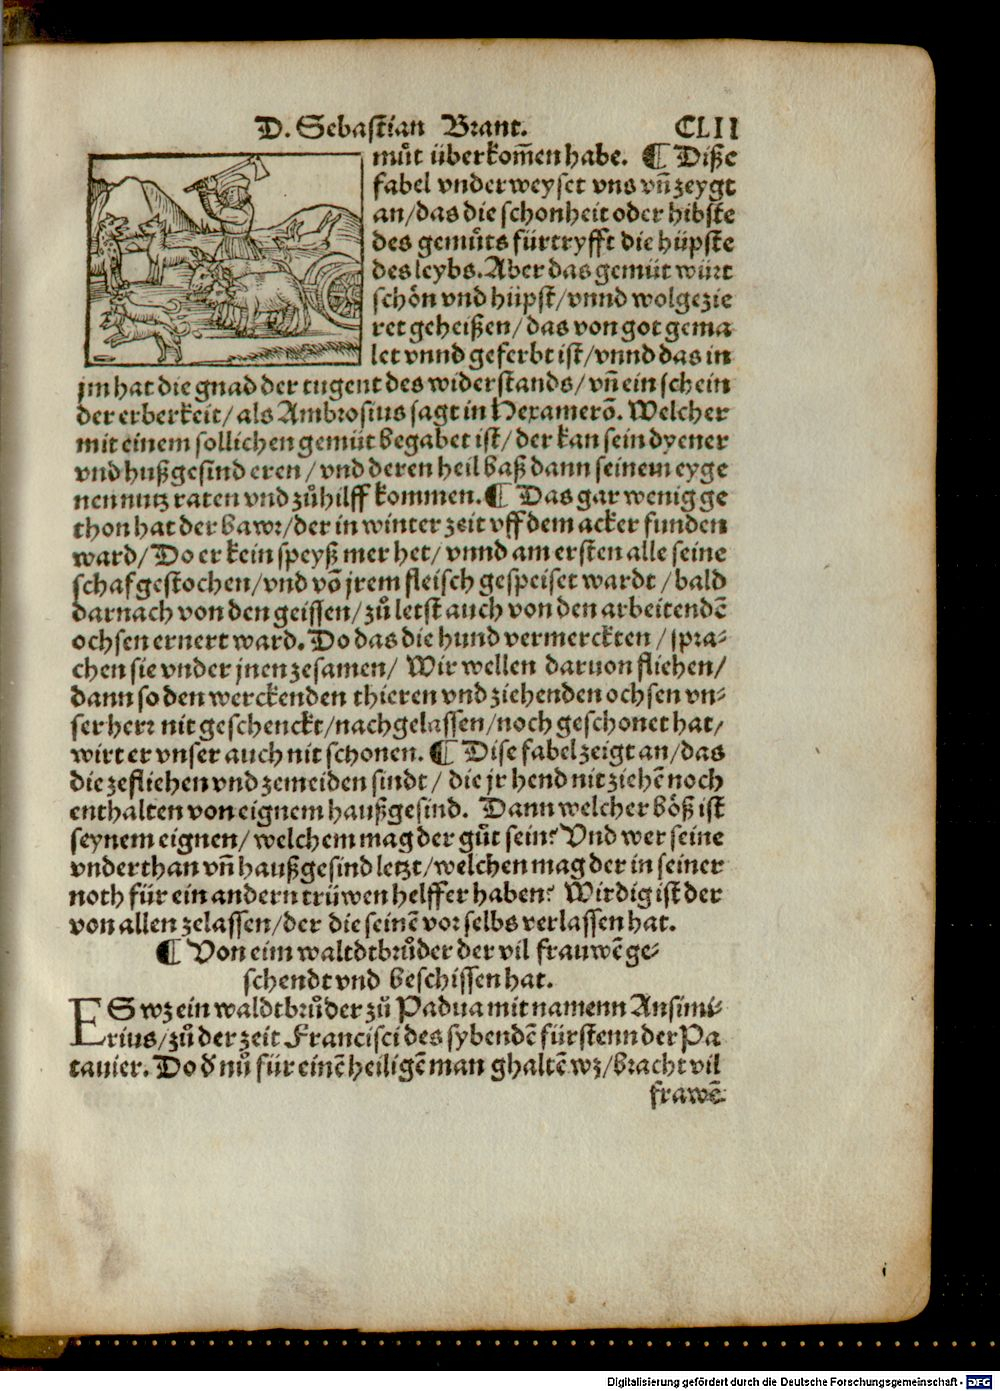 D. Sebastian Brant. CLII
muͤt überkom̃en habe. ¶ Diße
fabel vnderweyset vns vn̄ zeygt
an/das die schonheit oder hibste
des gemuͤts fürtryfft die hüpste
des leybs. Aber das gemüt würt
schoͤn vnd hüpst/vnnd wolgezie
ret geheißen/das von got gema
let vnnd geferbt ist/vnnd das in
jm hat die gnad der tugent des widerstands/vn̄ ein schein
der erberkeit/als Ambrosius sagt in Hexamerō. Welcher
mit einem sollichen gemüt begabet ist/der kan sein dyener
vnd hußgesind eren/vnd deren heil baß dann seinem eyge
nen nutz raten vnd zuͦhilff kommen. ¶ Das gar wenig ge
thon hat der bawr/der in winter zeit vff dem acker funden
ward/Do er kein speyß mer het/vnnd am ersten alle seine
schaf gestochen/vnd vō jrem fleisch gespeiset wardt/bald
darnach von den geissen/zuͦ letst auch von den arbeitendē
ochsen ernert ward. Do das die hund vermerckten/spra⸗
chen sie vnder jnen zesamen/Wir wellen daruon fliehen/
dann so den werckenden thieren vnd ziehenden ochsen vn⸗
ser herr nit geschenckt/nachgelassen/noch geschonet hat/
wirt er vnser auch nit schonen. ¶ Dise fabel zeigt an/das
die zefliehen vnd zemeiden sindt/die jr hend nit ziehē noch
enthalten von eignem haußgesind. Dann welcher boͤß ist
seynem eignen/welchem mag der guͤt sein? Vnd wer seine
vnderthan vn̄ haußgesind letzt/welchen mag der in seiner
noth für ein andern trüwen helffer haben? Wirdig ist der
von allen zelassen/der die seinē vor selbs verlassen hat.
¶ Von eim waltdtbruͦder der vil frauwē ge⸗
schendt vnd beschissen hat.
ES wz ein waldtbruͦder zuͦ Padua mit namenn Ansimi⸗
rius/zuͦ der zeit Francisci des sybendē fürstenn der Pa
tauier. Do d' nuͦ für einē heiligē man ghaltē wz/bracht vil
frawē
Digitalisierung gefördert durch die Deutsche Forschungsgemeinschaft - DFG